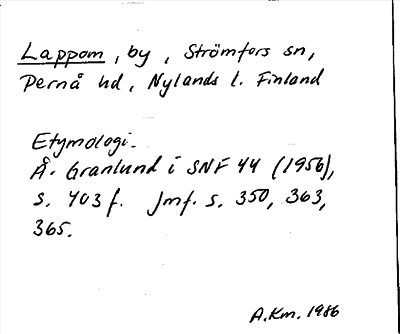 Lappom, by, Strömfors sn,
Pernå hd, Nylands l. Finland
Etymologi.
Å. Granlund i SNF 44 (1956),
s. 403 f. Jmf. s. 350, 363,
365.
A.Km. 1986